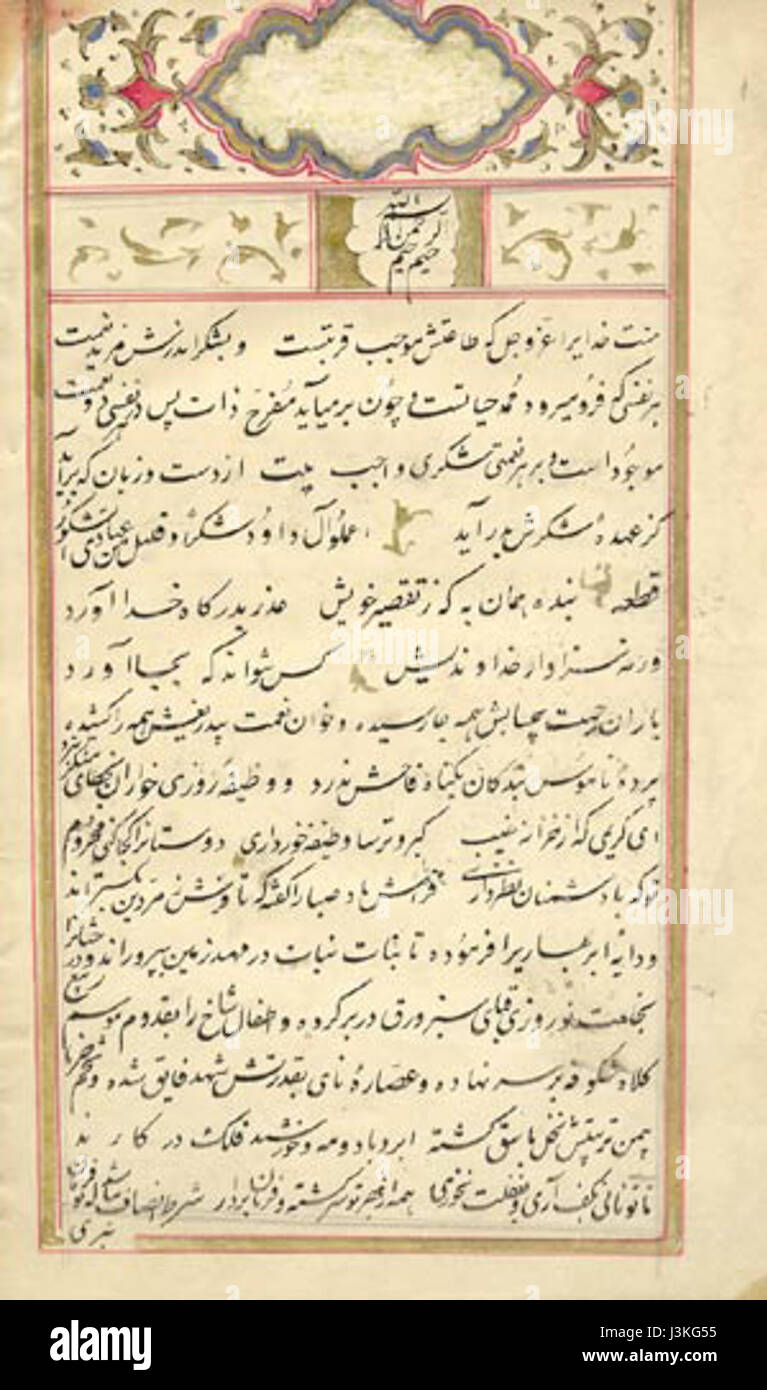 بسم الله
الرحمن الر
حیم
منت خدایرا عزوجل که طاعتش موجب قربتست و بشکر اندرش مزید نعمت
هر نفسی که فرو میرود ممد حیاتست و چون بر میآید مفرح ذات پس در هر نفسی دو نعمت
موجود است و بر هر نعمتی شکری واجب بیت از دست و زبان که برآید
کز عهده شکرش بدر آید اعملوا آل داود شکرا و قلیل من عبادی الشکور
قطعه بنده همان به که ز تقصیر خویش عذر بدرگاه خدا آورد
ورنه سزاوار خداوندیش کس نتواند که بجا آورد
باران رحمت بیحسابش همه جا رسیده و خوان نعمت بیدریغش همه را کشیده
پرده ناموس بندگان بگناه فاحش ندرد و وظیفه روزی خواران بخطای منکر نبرد
ای کریمی که از خزانه غیب گبر و ترسا وظیفه خور داری دوستانرا کجا کنی محروم
تو که با دشمنان نظر داری فراش باد صبا را گفته که تا فرش زمردین بگستراند
و دایه ابر بهاریرا فرموده تا بنات نبات در مهد زمین بپروراند و درختانرا
بخلعت نوروزی قبای سبز ورق در بر کرده و اطفال شاخ را بقدوم موسم ربیع
کلاه شکوفه بر سر نهاده و عصاره نای بقدرتش شهد فایق شده و تخم خرما
بیمن تربیتش نخل باسق گشته ابر و باد و مه و خورشید و فلک در کارند
تا تو نانی بکف آری و بغفلت نخوری همه از بهر تو سرگشته و فرمان بردار شرط انصاف نباشد که تو فرمان
نبری
alamy
alamy
Image ID: J3KG55
www.alamy.com